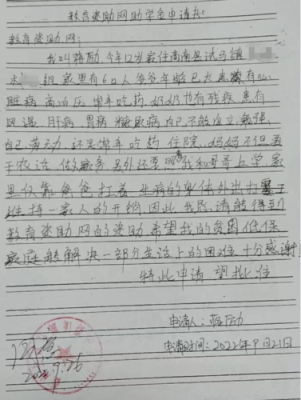 教育资助网助学金申请书
教育资助网:
我叫 励 今年12岁家住商南县试马镇
组 家里有6口人 爷爷年龄已大 患有心
脏病 高血压 常年吃药 奶奶也有残疾 患有
风湿、肝病、胃病、糖尿病 自己不能自立 勉强
自己劳动 还是常年吃药 住院 妈妈不但要
干农活 做家务 另外还要 我和哥哥上学 家
里仅靠爸爸打工 的身体外出打
维持一家人的开销 因此 我 请能得到
教育资助网的资助 希望我的贫困低保
家庭能解决一部分生活上的困难 十分感谢!
特此申请 望批准
申请人: 励
申请时间: 2022年9月21日